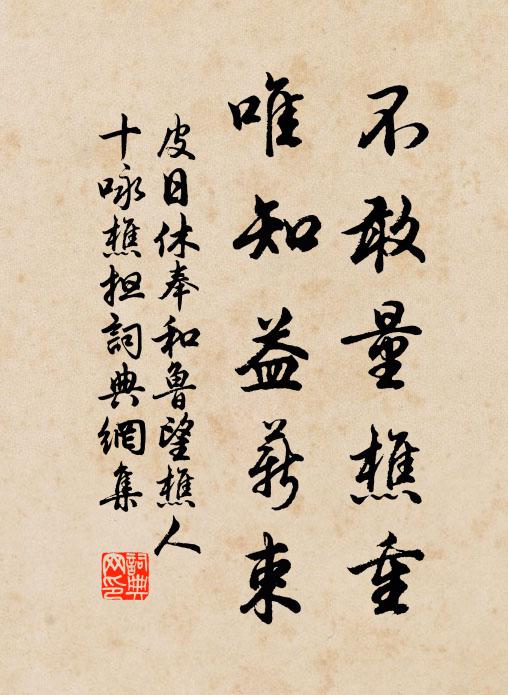 不敢量樵重
唯知益薪束
皮日休奉和魯望樵人
十咏樵担詞典網集
詞典网印